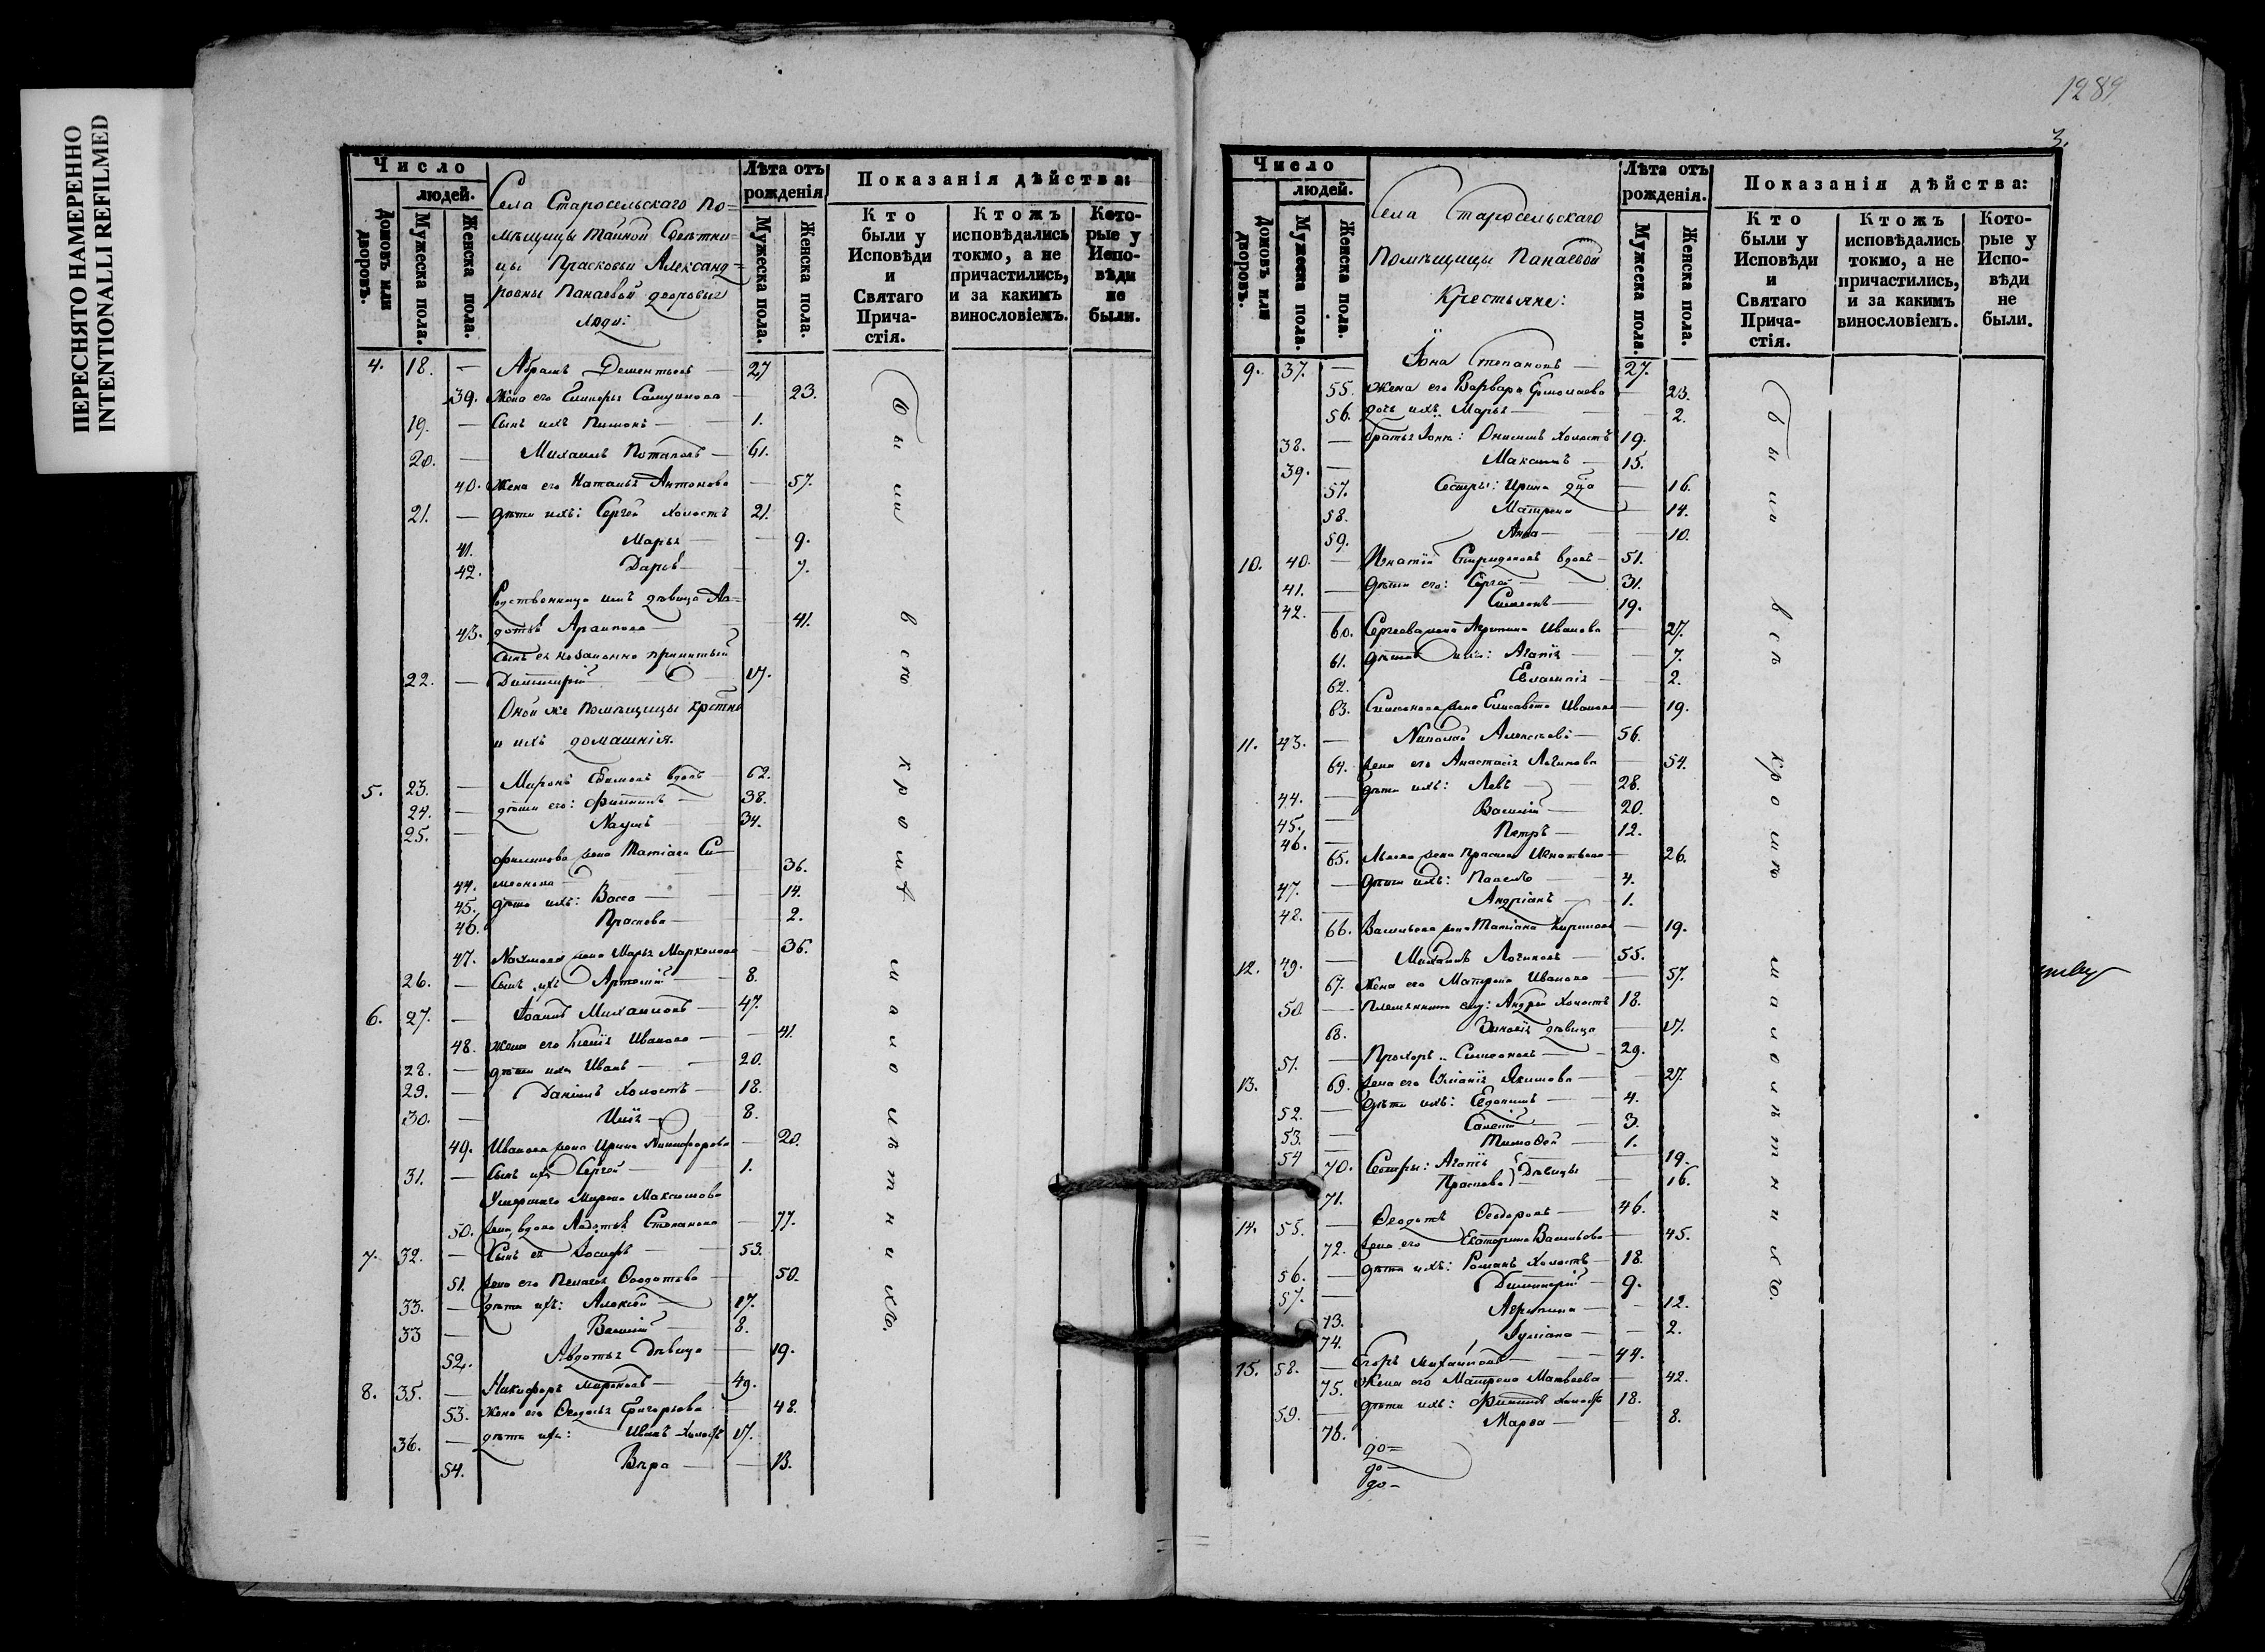 ПЕРЕСНЯТО НАМЕРЕННО
INTENTIONALLI REFILMED
Число
людей.
Домовъ или дворовъ.
Мужеска пола.
Женска пола.
Села Старосельскаго по=
мѣщицы тайной Совѣтни=
цы Прасковьи Александ=
ровны Панаевой дворовые
люди:
Лѣта отъ рожденія
Мужеска пола.
Женска пола.
Показанія дѣйства:
Кто были у Исповѣди и Святаго Причастія.
Ктожъ исповѣдались токмо, а не причастились, и за какимъ винословіемъ.
Которые у Исповѣди не были.
4. 18. — Абрамъ Дементьевъ — 27
39. Жена его Гликерья Самуилова — 23.
19. — Сынъ ихъ Пименъ — 1.
20. — Михаилъ Потаповъ — 61.
40. Жена его Наталья Антонова — 57.
21. — дѣти ихъ: Сергей холостъ 21.
41. Марья — 9.
42. Дарья — 7.
Родственница имъ дѣвица Ав=
43. дотья Архипова — 41.
Сынъ ея незаконно прижитый
22. — Димитрій — 17.
Оной же помѣщицы крстне
и ихъ домашнія.
5. 23. — Миронъ вдовъ — 62.
24. — дѣти его: Филиппъ — 38.
25. — Наумъ — 34.
Филиппова жена Татіана Си=
44. меонова — 36.
45. дѣти ихъ: Васса — 14.
46. Прасковья — 2.
47. Наумова жена Марья Маркелова — 36.
26. — Сынъ ихъ Артемій — 8.
6. 27. — Іоаннъ Михайловъ — 47.
48. жена его Ксенія Иванова — 41.
28. — дѣти ихъ Иванъ — 20.
29. — Даніилъ холостъ — 18.
30. — Илія — 8.
49. Иванова жена Ирина Никифорова — 20.
31. — Сынъ ихъ Сергей — 1.
Умершаго Мирона Максимова
50. жена вдова Авдотья Степанова — 77.
7. 32. — Сынъ ея Іосифъ — 53.
51. жена его Пелагея Ѳедотова — 50.
33. — дѣти ихъ: Алексей — 17.
33 — Василій — 8.
52. Авдотья дѣвица — 19.
8. 35. — Никифоръ Мироновъ — 49.
53. жена его Ѳедосья Григорьева — 48.
36. — дѣти ихъ: Иванъ холостъ 17.
54. Вѣра — 13.
были всѣ кромѣ малолѣтнихъ.
1289
3.
Число
людей.
Домовъ или дворовъ.
Мужеска пола.
Женска пола.
Села Старосельскаго
Помѣщицы Панаевой
Крестьяне:
Лѣта отъ рожденія.
Мужеска пола.
Женска пола.
Показанія дѣйства:
Кто были у Исповѣди и Святаго Причастія.
Ктожъ исповѣдались токмо, а не причастились, и за какимъ винословіемъ.
Которые у Исповѣди не были.
9. 37. — Іона Степановъ — 27.
55. жена его Варвара Ермолаева — 23.
56. дочь ихъ Марья — 2.
38. — братья Іоны: Онисимъ холостъ 19.
39. — Максимъ — 15.
57. Сестры: Ирина — 16.
58. Матрена — 14.
59. Анна — 10.
10. 40. — Игнатій Спиридоновъ вдовъ — 51.
41. — дѣти его: Сергей — 31.
42. — Симеонъ — 19.
60. Сергеева жена Агрипина Иванова — 27.
61. дѣти ихъ: Агапія — 7.
62. Евлампія — 2.
63. Симеонова жена Елисавета Иванова — 19.
11. 43. — Николай Алексѣевъ — 56.
64. жена его Анастасія Логинова — 54.
44. — дѣти ихъ: Левъ — 28.
45. — Василій — 20.
46. Петръ — 12.
65. Львова жена Прасковья Игнатьева — 26.
47. — дѣти ихъ: Павелъ — 4.
48. — Андріанъ — 1.
66. Васильева жена Татіана Кирилова — 19.
12. 49. — Михаилъ Логиновъ — 55.
67. жена его Матрена Иванова — 57.
50 — Племянники ему: Андрей холостъ 18.
68. Зиновія дѣвица — 17.
51. — Прохоръ Симеоновъ — 29.
13. 69. жена его Іуліанія Якимова — 27.
52. — дѣти ихъ: Евдокимъ — 4.
53. — Савелій — 3.
54 Тимоѳей — 1.
70. Сестры: Агапія } 19.
71. Прасковья } дѣвицы — 16.
14. 55. — Ѳедотъ Ѳедоровъ — 46.
72. жена его Екатерина Васильева — 45.
56. — дѣти ихъ: Романъ холостъ — 18.
57. — Димитрій — 9.
73. Агрипина — 12.
74. Іуліана — 2.
15. 58. — Егоръ Михайловъ — 44.
75. Жена его Матрена Матвеева — 42.
59. — дѣти ихъ: Филиппъ холостъ 18.
76. Марѳа — 8.
до=
до—
до—
были всѣ кромѣ малолѣтнихъ.